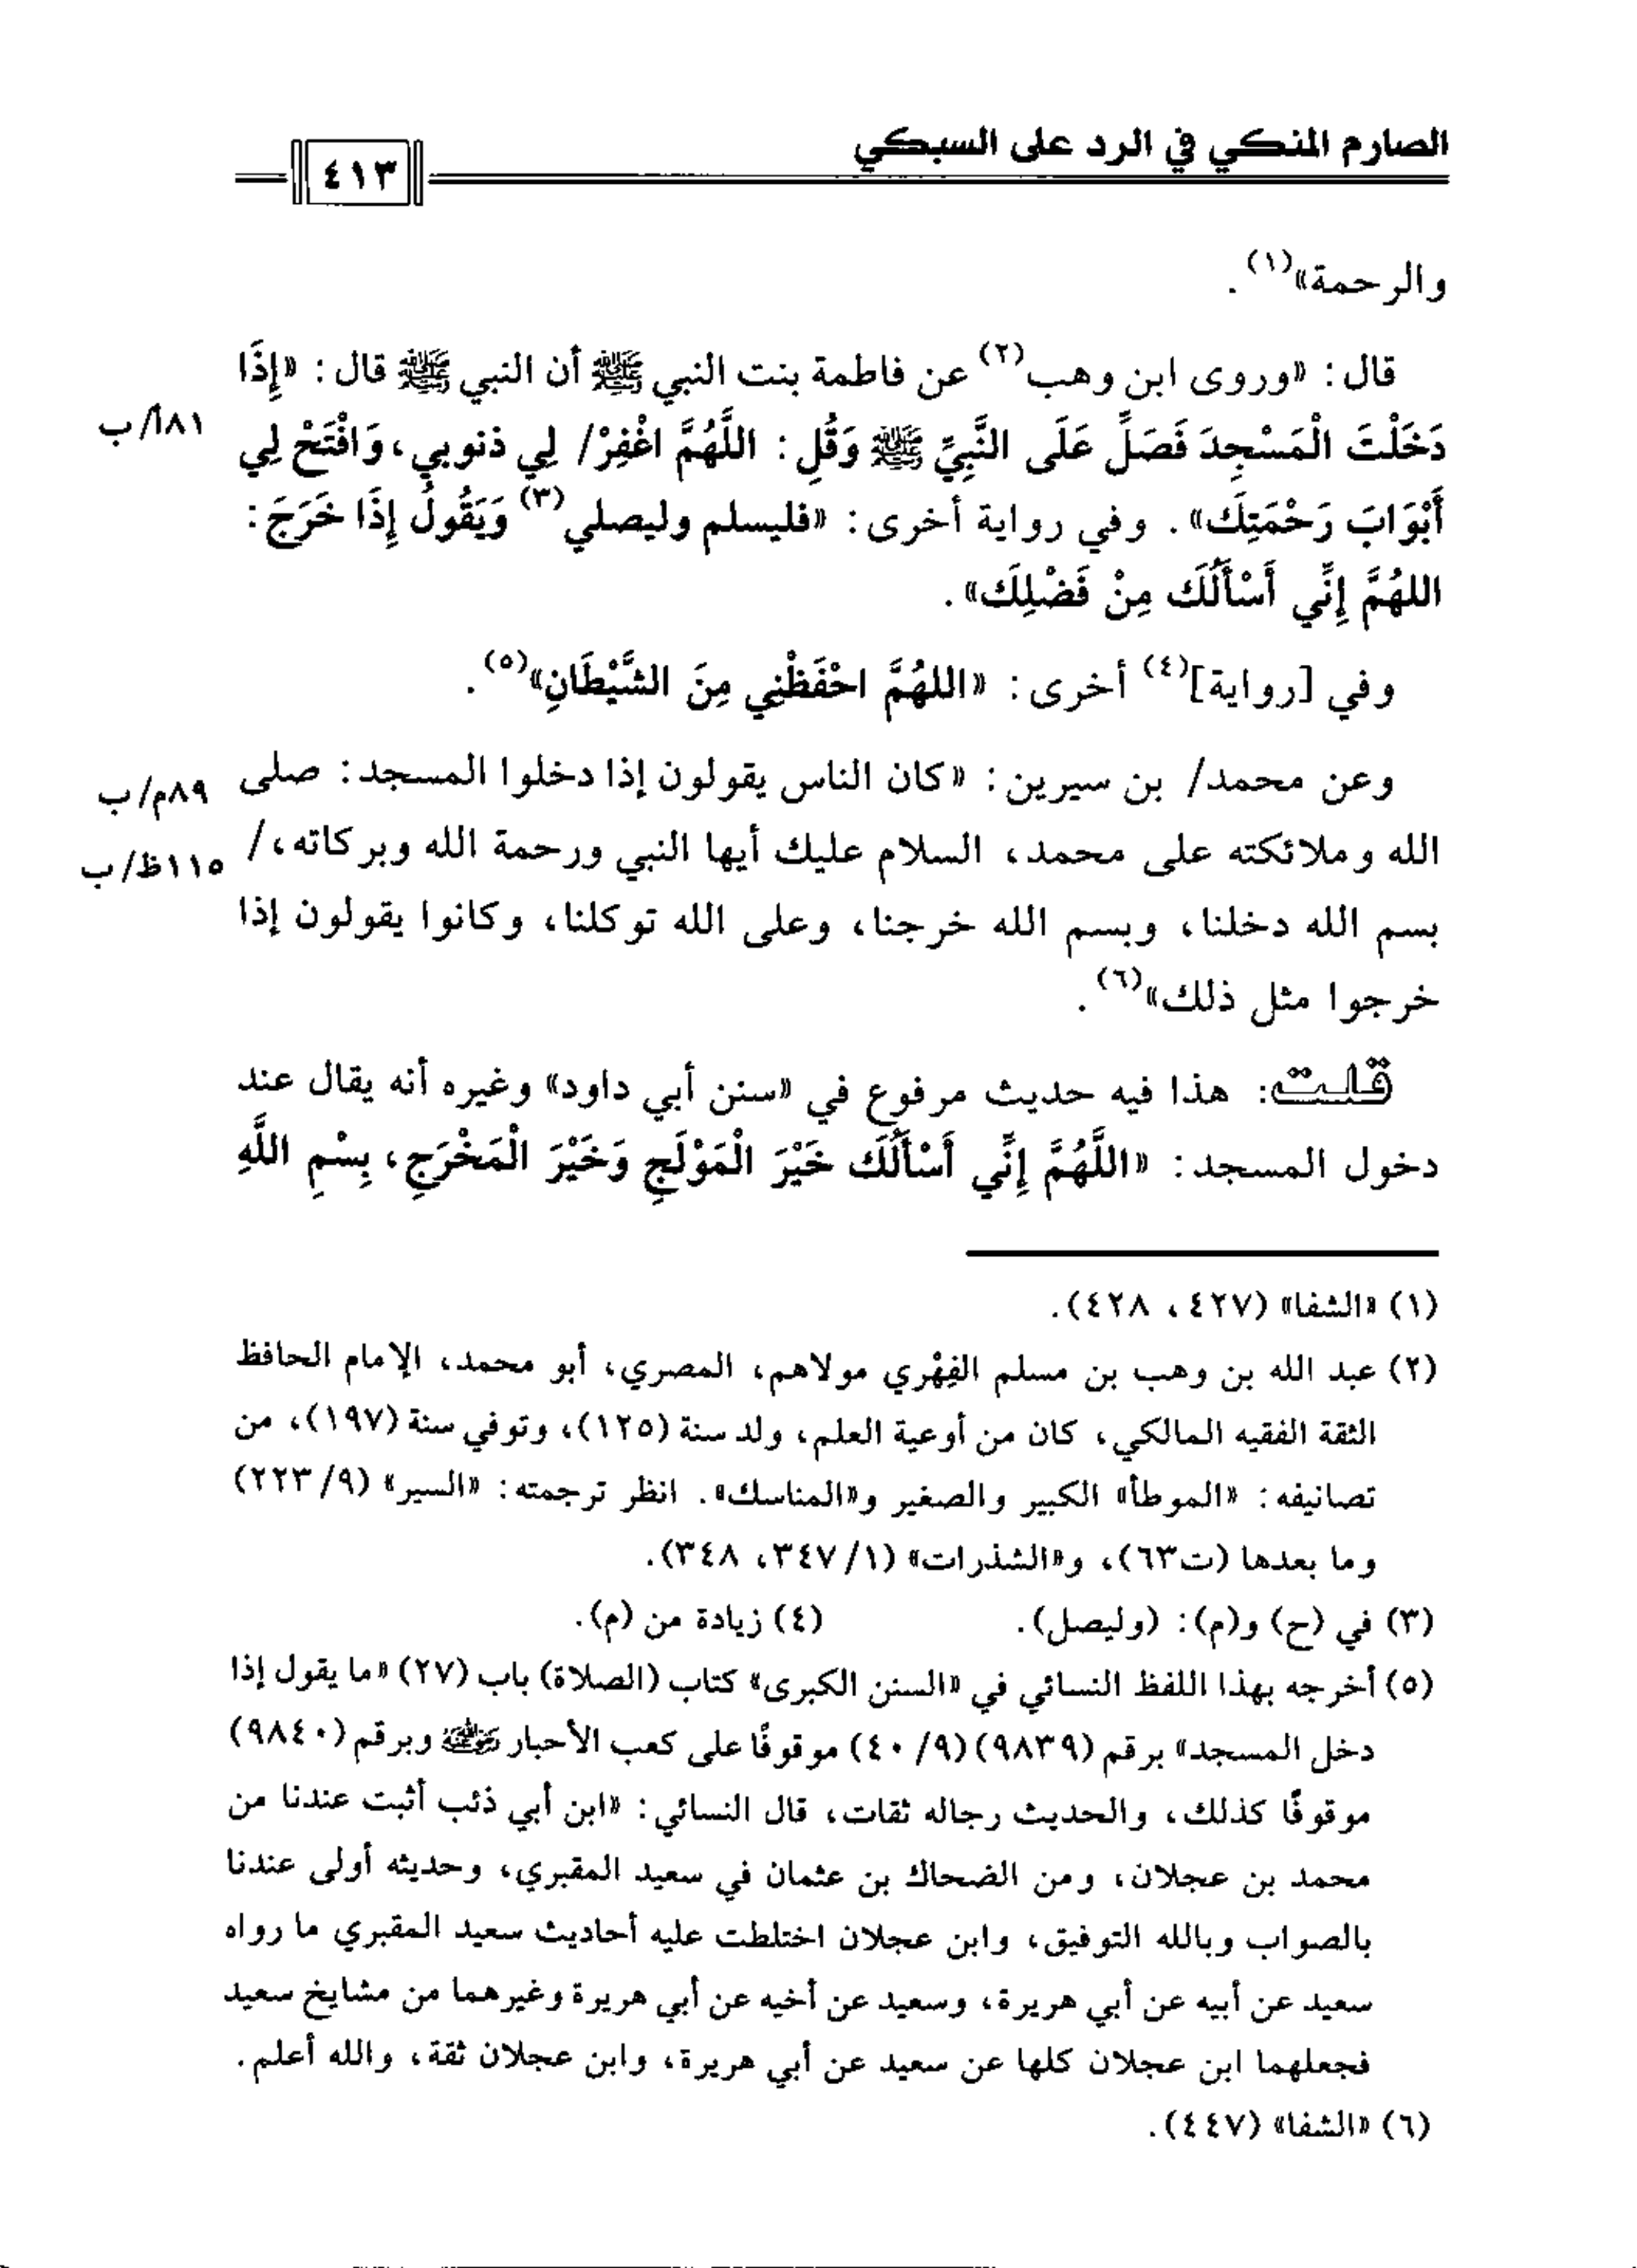 الصارم المنكي في الرد على السبكي
٤١٣
والرحمة»(١).
قال: «وروى ابن وهب(٢) عن فاطمة بنت النبي ﷺ أن النبي ﷺ قال: «إِذَا
دَخَلْتَ الْمَسْجِدَ فَصَلِّ عَلَى النَّبِيِّ ﷺ وَقُلِ: اللَّهُمَّ اغْفِرْ/ لِي ذنوبي، وَافْتَحْ لِي
١٨١أ/ب
أَبْوَابَ رَحْمَتِكَ». وفي رواية أخرى: «فليسلم وليصلي(٣) وَيَقُولُ إِذَا خَرَجَ:
اللهُمَّ إِنِّي أَسْأَلُكَ مِنْ فَضْلِكَ».
وفي [رواية](٤) أخرى: «اللهُمَّ احْفَظْنِي مِنَ الشَّيْطَانِ»(٥).
وعن محمد/ بن سيرين: «كان الناس يقولون إذا دخلوا المسجد: صلى
٨٩م/ب
الله وملائكته على محمد، السلام عليك أيها النبي ورحمة الله وبركاته،/
١١٥ظ/ب
بسم الله دخلنا، وبسم الله خرجنا، وعلى الله توكلنا، وكانوا يقولون إذا
خرجوا مثل ذلك»(٦).
قلت: هذا فيه حديث مرفوع في «سنن أبي داود» وغيره أنه يقال عند
دخول المسجد: «اللَّهُمَّ إِنِّي أَسْأَلُكَ خَيْرَ الْمَوْلَجِ وَخَيْرَ الْمَخْرَجِ، بِسْمِ اللَّهِ
(١) «الشفا» (٤٢٧، ٤٢٨).
(٢) عبد الله بن وهب بن مسلم الفِهْري مولاهم، المصري، أبو محمد، الإمام الحافظ
الثقة الفقيه المالكي، كان من أوعية العلم، ولد سنة (١٢٥)، وتوفي سنة (١٩٧)، من
تصانيفه: «الموطأ» الكبير والصغير و«المناسك». انظر ترجمته: «السير» (٩/ ٢٢٣)
وما بعدها (ت٦٣)، و«الشذرات» (١/ ٣٤٧، ٣٤٨).
(٣) في (ح) و(م): (وليصل). (٤) زيادة من (م).
(٥) أخرجه بهذا اللفظ النسائي في «السنن الكبرى» كتاب (الصلاة) باب (٢٧) «ما يقول إذا
دخل المسجد» برقم (٩٨٣٩) (٩/ ٤٠) موقوفًا على كعب الأحبار رضي الله عنه وبرقم (٩٨٤٠)
موقوفًا كذلك، والحديث رجاله ثقات، قال النسائي: «ابن أبي ذئب أثبت عندنا من
محمد بن عجلان، ومن الضحاك بن عثمان في سعيد المقبري، وحديثه أولى عندنا
بالصواب وبالله التوفيق، وابن عجلان اختلطت عليه أحاديث سعيد المقبري ما رواه
سعيد عن أبيه عن أبي هريرة، وسعيد عن أخيه عن أبي هريرة وغيرهما من مشايخ سعيد
فجعلهما ابن عجلان كلها عن سعيد عن أبي هريرة، وابن عجلان ثقة، والله أعلم.
(٦) «الشفا» (٤٤٧).